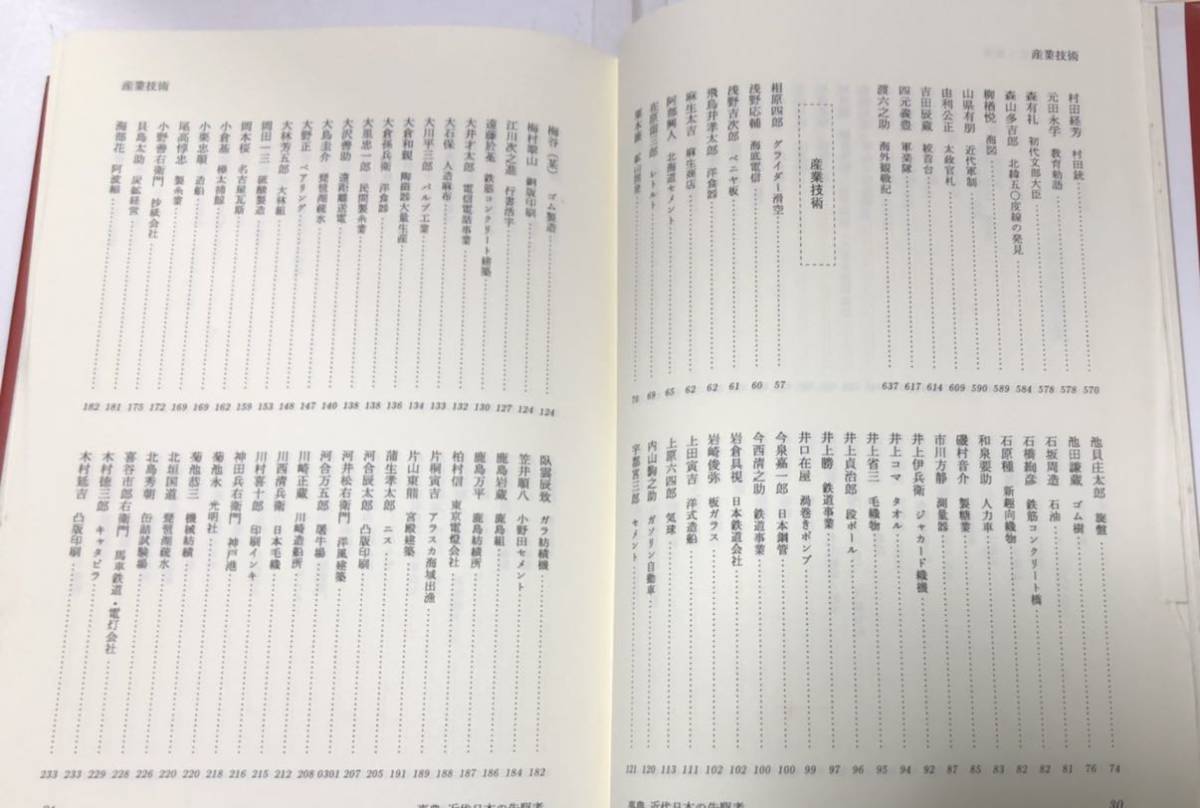 産業技術
村田経芳 村田銃 570
元田永孚 教育勅語 578
森有礼 初代文部大臣 578
森山多吉郎 北緯五〇度線の発見 584
柳楢悦 海図 589
山県有朋 近代軍制 590
由利公正 太政官札 609
吉田辰蔵 614
四元義豊 軍楽隊 617
渡六之助 海外観戦記 637
産業技術
相原四郎 グライダー滑空 57
浅野応輔 海底電信 60
浅野吉次郎 ベニヤ板 61
飛鳥井孝太郎 洋食器 62
麻生太吉 麻生商店 62
阿部興人 北海道セメント 65
レトルト 69
70
池貝庄太郎 旋盤 74
池田謙蔵 ゴム樹 76
石坂周造 石油 81
石橋絢彦 鉄筋コンクリート橋 82
石原種 新趣向織物 82
和泉要助 人力車 83
磯村音介 製糖業 85
市川方静 測量器 87
井上伊兵衛 ジャカード織機 92
井上コマ タオル 94
井上省三 毛織物 95
井上貞治郎 段ボール 96
井上勝 鉄道事業 97
井口在屋 渦巻きポンプ 99
今泉嘉一郎 日本鋼管 100
今西清之助 鉄道事業 100
岩倉具視 日本鉄道会社 102
岩崎俊弥 板ガラス 102
上田寅吉 洋式造船 111
上原六四郎 気球 113
内山駒之助 ガソリン自動車 120
宇都宮三郎 セメント 121
事典 近代日本の先駆者
30
産業技術
梅谷(某) ゴム製造 124
梅村翠山 銅版印刷 124
江川次之進 行書活字 127
遠藤於菟 鉄筋コンクリート建築 130
大井才太郎 電信電話事業 132
大石保 人造麻布 133
大川平三郎 パルプ工業 134
大倉和親 陶磁器大量生産 136
大倉孫兵衛 洋食器 138
大里忠一郎 民間製糸業 138
大沢善助 遠距離送電 140
大鳥圭介 琵琶湖疏水 147
大野正 ベアリング 148
大林芳五郎 大林組 153
岡田一三 硫酸製造 159
岡本桜 名古屋瓦斯 162
小倉基 樺太捕鯨 169
小栗忠順 造船 169
尾高惇忠 製糸業 172
小野善右衛門 抄紙会社 175
貝島太助 炭鉱経営 181
海部花 阿波縮 182
臥雲辰致 ガラ紡績機 182
笠井順八 小野田セメント 184
鹿島岩蔵 鹿島組 186
鹿島万平 鹿島紡績所 187
柏村信 東京電燈会社 188
片桐寅吉 アラスカ海域出漁 189
片山東熊 宮殿建築 191
蒲生孝太郎 ニス 205
河合辰太郎 凸版印刷 207
河井松右衛門 洋風建築
河合万五郎 曙牛場
川崎正蔵 川崎造船所 208
川西清兵衛 日本毛織 212
川村喜十郎 印刷インキ 215
神田兵右衛門 神戸港 216
菊池永 光明社 218
菊池恭三 機械紡績 220
北垣国道 琵琶湖疏水 220
北島秀朝 缶詰試験場 226
喜谷市郎右衛門 馬車鉄道・電灯会社 228
木村徳三郎 キャタピラ 229
木村延吉 凸版印刷 233